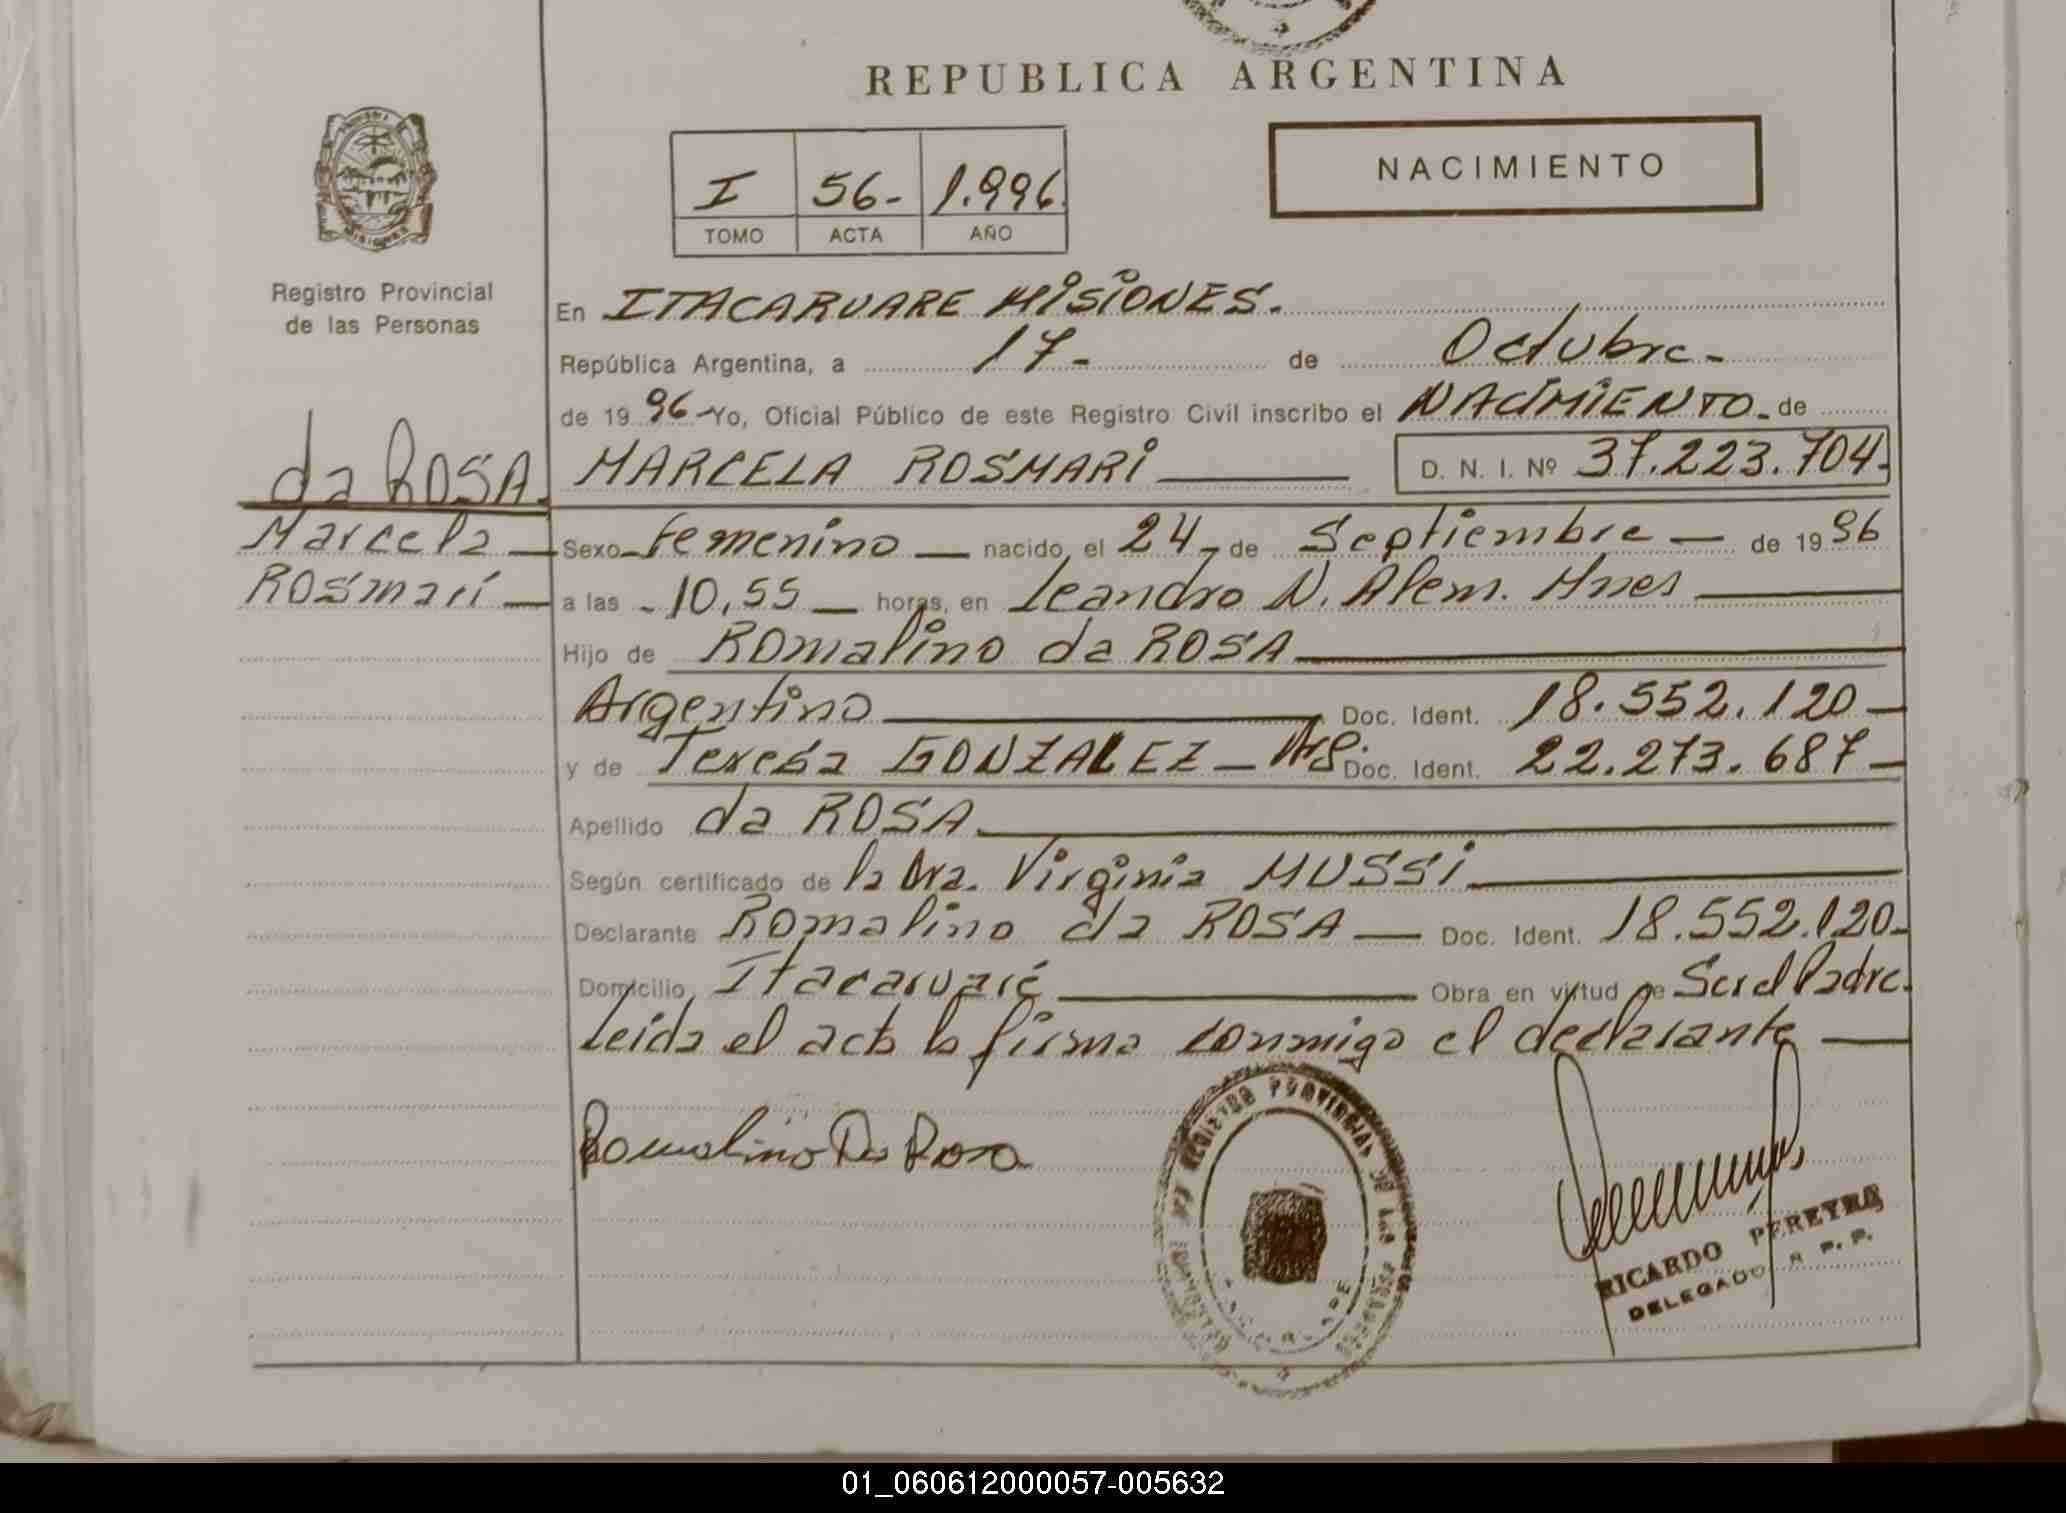 REPUBLICA ARGENTINA
NACIMIENTO
I 56- 1.996
TOMO ACTA AÑO
Registro Provincial
de las Personas
En ITACARUARE MISIONES.
República Argentina, a 17- de Octubre-
de 19 96- Yo, Oficial Público de este Registro Civil inscribo el NACIMIENTO- de
da ROSA MARCELA ROSMARI D. N. I. Nº 37.223.704.
Marcela
Rosmari
Sexo Femenino nacido, el 24 - de Septiembre - de 19 96
a las - 10,55 horas, en Leandro N. Alem. Mnes
Hijo de Romalino da ROSA
Argentino Doc. Ident. 18.552.120-
y de Teresa GONZALEZ - Arg. Doc. Ident. 22.273.687-
Apellido da ROSA
Según certificado de la Dra. Virginia MUSSI
Declarante Romalino da ROSA Doc. Ident. 18.552.120-
Domicilio Itacaruaré Obra en virtud de Ser el Padre.
Leida el acta la firma conmigo el declarante
Romalino Da Rosa
REGISTRO PROVINCIAL DE LAS PERSONAS
RICARDO PEREYRA
DELEGADO R. P. P.
01_060612000057-005632